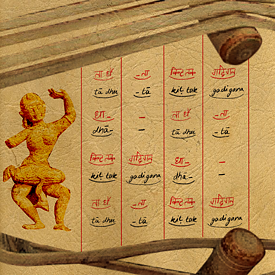 ता धी -ता किटतक गदिगन
tā dhī -tā kit tak gadigana
धा- - ता धी -ता
dhā- - tā dhī -tā
किटतक गदिगन धा- -
kit tak gadigana dhā- -
ता धी -ता किटतक गदिगन
tā dhī -tā kit tak gadigana